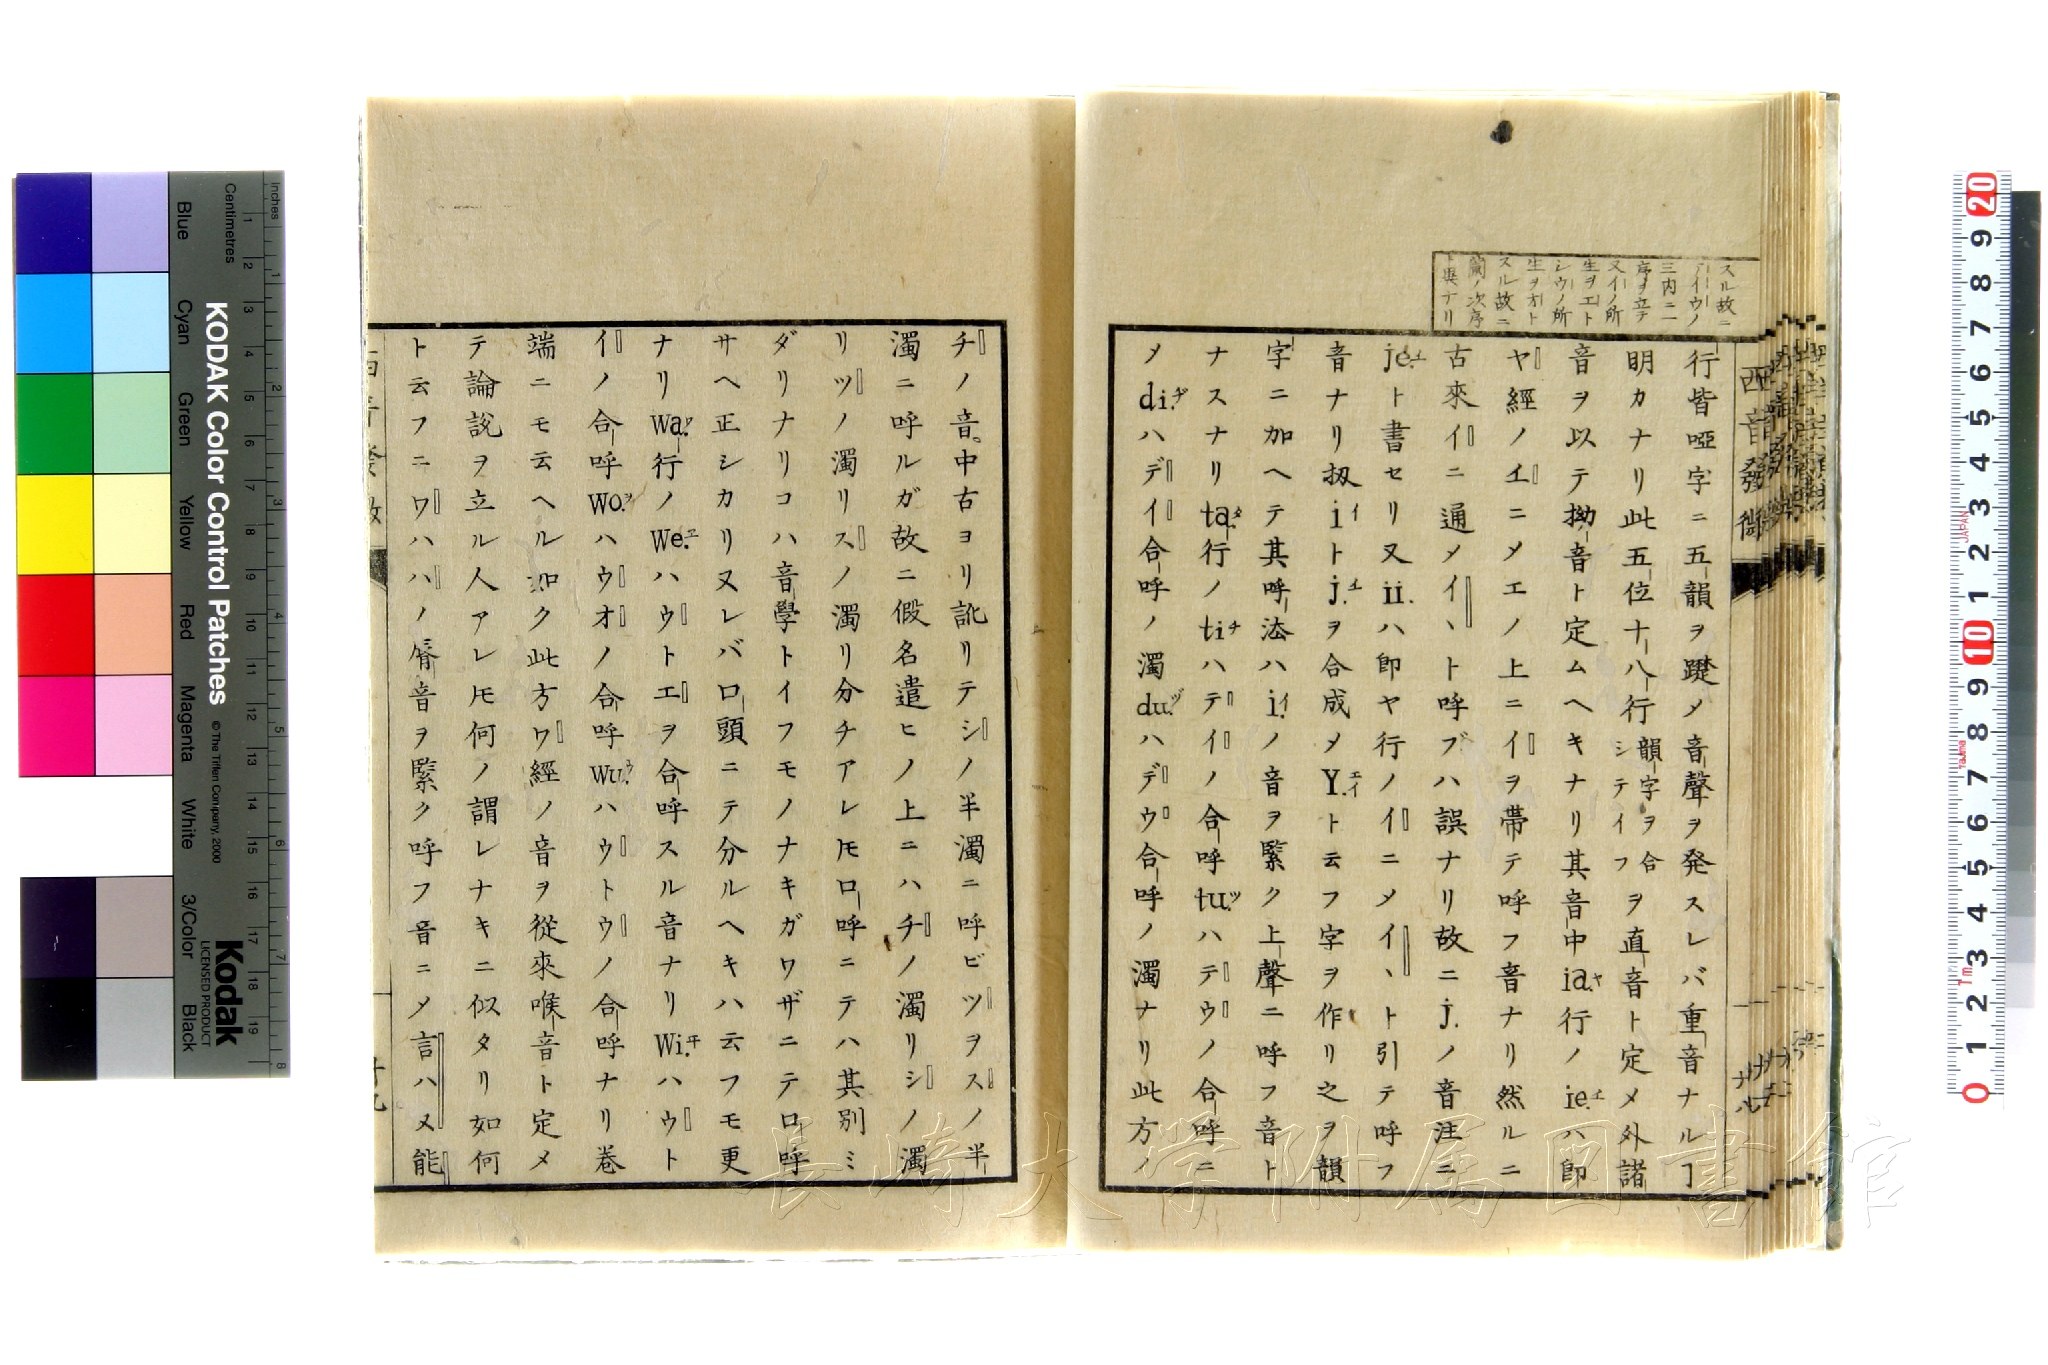 スル故ニ
アイウノ
三内ニ二
序ヲ立テ
又イノ所
生ヲエト
シウノ所
生ヲオト
スル故ニ
蘭ノ次序
ト異ナリ
行皆啞字ニ五韻ヲ躡メ音聲ヲ発スレバ重音ナル丁
明カナリ此五位十八行韻字ヲ合シテイフヲ直音ト定メ外諸
音ヲ以テ拗音ト定ムヘキナリ其音中ia.ヤ行ノie.エハ卽
ヤ經ノエニメエノ上ニイヲ帶テ呼フ音ナリ然ルニ
古來イニ通メイヽト呼ブハ誤ナリ故ニj.ノ音注ニ
je.エト書セリ又ii.ハ卽ヤ行ノイニメイヽト引テ呼フ
音ナリ扨iイトj.イヲ合成メY.エイト云フ字ヲ作リ之ヲ韻
字ニ加ヘテ其呼法ハi.イノ音ヲ緊ク上聲ニ呼フ音ト
ナスナリta.タ行ノtiチハテイノ合呼tu.ツハテウノ合呼ニ
メdi.ヂハデイ合呼ノ濁du.ヅハデウ合呼ノ濁ナリ此方イ
西音發微
チノ音中古ヨリ訛リテシノ半濁ニ呼ビツヲスノ半
濁ニ呼ルガ故ニ假名遣ヒノ上ニハチノ濁リシノ濁
リツノ濁リスノ濁リ分チアレ𪜈口呼ニテハ其別ミ
ダリナリコハ音學トイフモノナキガワザニテ口呼
サヘ正シカリヌレバ口頭ニテ分ルヘキハ云フモ更
ナリwa.ワ行ノWe.エハウトエヲ合呼スル音ナリWi.ヰハウト
イノ合呼wo.ヲハウオノ合呼wu.ウハウトウノ合呼ナリ卷
端ニモ云ヘル如ク此方ワ經ノ音ヲ從來喉音ト定メ
テ論說ヲ立ル人アレ𪜈何ノ謂レナキニ似タリ如何
ト云フニワハハノ脣音ヲ緊ク呼フ音ニメ言ハヌ能
Kodak
LICENSED PRODUCT
KODAK Color Control Patches
©The Tiffen Company, 2000
Inches
Centimetres
Blue
Cyan
Green
Yellow
Red
Magenta
White
3/Color
Black
長崎大学附属図書館
JAPAN